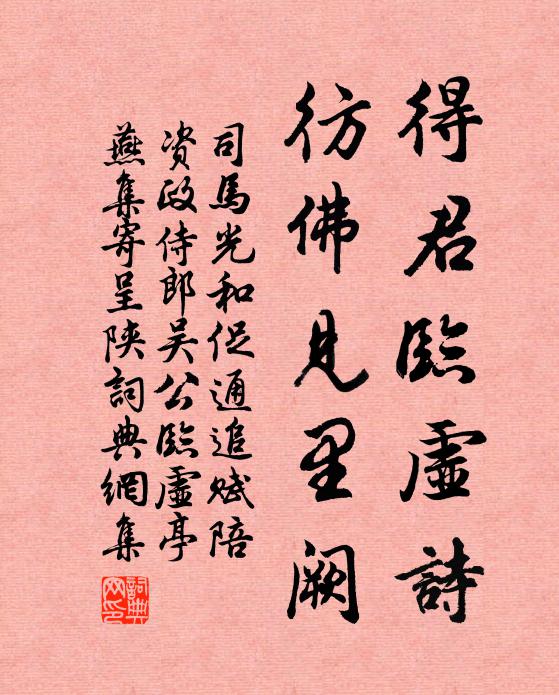 得君臨虛詩
彷佛見里闕
司馬光和促通追賦陪
资政侍郎吴公臨虛亭
燕集寄呈陝詞典網集
詞典網印